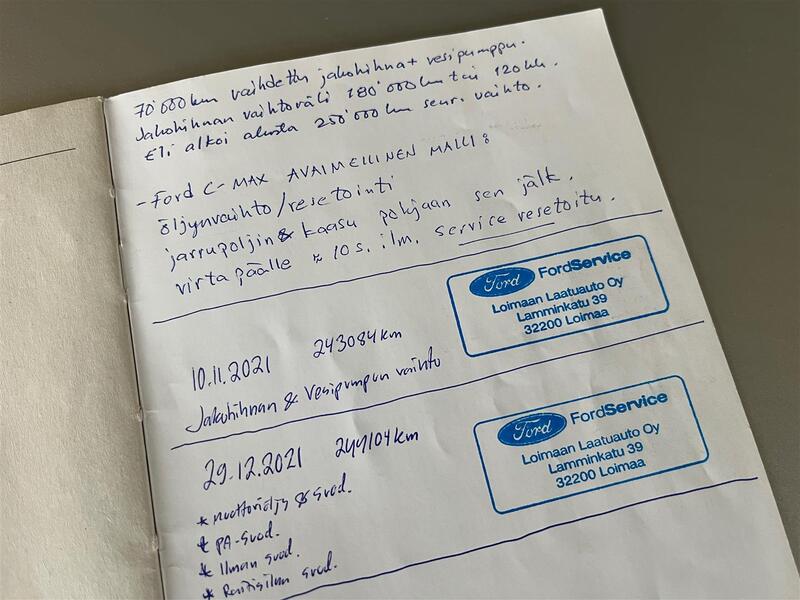 70'000km vaihdettu jakohihna + vesipumppu.
Jakohihnan vaihtoväli 180'000km tai 120kk.
Eli alkoi alusta 250'000km seur. vaihto.
- Ford C-MAX AVAIMELLINEN MALLI:
öljynvaihto/resetointi
jarrupoljin & kaasu pohjaan sen jälk.
virta päälle ≈ 10s. ilm. service resetoitu.
Ford FordService
Loimaan Laatuauto Oy
Lamminkatu 39
32200 Loimaa
10.11.2021 243084km
Jakohihnan & Vesipumpun vaihto
Ford FordService
Loimaan Laatuauto Oy
Lamminkatu 39
32200 Loimaa
29.12.2021 244104km
* moottoriöljy & suod.
* PA-suod.
* Ilman suod.
* Raitisilma suod.